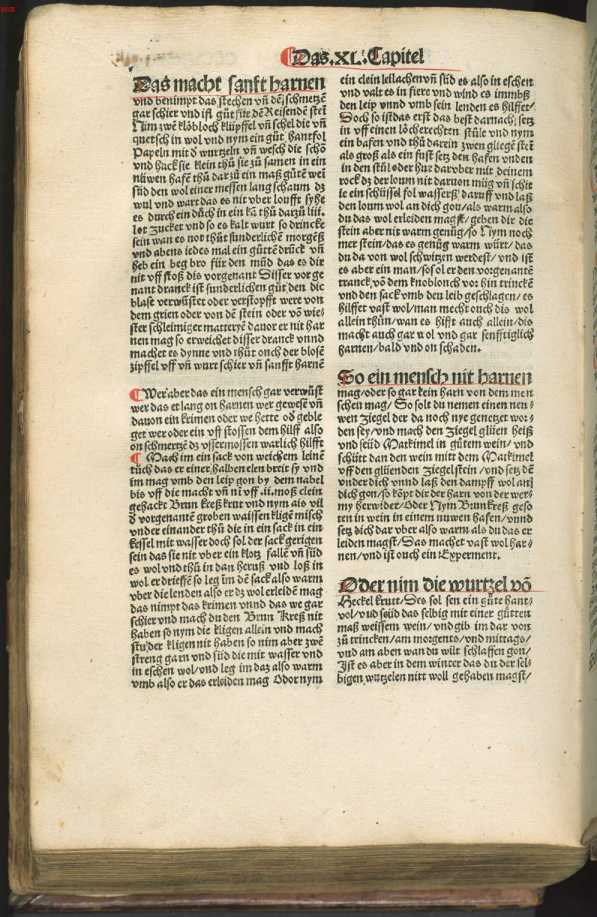 Das.XL.Capitel
Das macht sanfft harnen
vnd benimpt das stechen vñ dē schmertzē
gar schier vnd ist gůt für dē Reisendē stei
Nim zwē klöbloch klüpffel vñ schel die vñ
quetsch in wol vnd nym ein gůt hantfol
Papeln mit d wurtzeln vñ wesch die schō
vnd hack sie klein thů sie zů samen in ein
nüwen hafē thů dar zů ein maß gůtē wei
süd den wol einer messen lang schaum dz
wul vnd wart das es nit vber loufft syhe
es durch ein důch in ein kā thů darzů iiii.
lot zucker vnd so es kalt wurt so drincke
sein wan es not thůt sunderlichē morgēß
vnd abens iedes mal ein gůttē drück vñ
heb ein beg bro für den mūd das es dir
nit vff stoß dis vorgenant Disser vor ge
nant dranck ist sunderlichen gůt den die
blase verwüstet oder verstopfft were von
dem grien oder von dē stein oder vō wie
ster schleimiger matteryē dauor er nit har
nen mag so erweichet disser dranck vnnd
machet es dynne vnd thůt onch der blosē
zipffel vff vñ wurt schier vñ sanfft harnē
Wer aber das ein mensch gar verwüst
wer das et lang on harnen wer gewesē vñ
dauon ein krimen oder we hette od geble
get wer oder ein vff stossen dem hilff also
on schmertzē dz vssernossen warlich hilfft
Mach im ein sack von weichem leinē
tůch das er einer halben elen breit sy vnd
im mag vmb den leip gon by dem nabel
bis vff die macht vñ nī vff .ii. moß clein
gehackt Brun kreß krut vnd nym als vil
d vorgenantē groben waissen kligē misch
vnder einander thů die in ein sack in ein
kessel mit wasser doch sol der sack gerigen
sein das sie nit vber ein klotz fallē vñ süd
es wol vnd thů in dan heruß vnd loß in
wol er drieffē so leg im dē sack also warm
vber die lenden also er dz wol erleidē mag
das nimpt das krimen vnnd das we gar
schier vnd mach du den Brun Kreß nit
haben so nym die kligen allein vnd mach
stu der kligen nit haben so nim aber zwē
streng garn vnd süd die mit wasser vnd
in eschen wol/vnd leg im daz also warm
vmb also er das erleiden mag Odor nym
ein clein leilachen vñ süd es also in eschen
vnd valt es in fiere vnd wind es immbß
den leip vnnd vmb sein lenden es hilffet/
Doch so ist das erst das best darnach; setz
in vff einen löcherechten stůle vnd nym
ein hafen vnd thů darein zwen gliegē stei
als groß als ein fust setz den hafen vnden
in den stůl oder hur dar vber mit deinem
rock dz der loum nit dar von müg vñ schit
te ein schüssel fol wasserß daruff vnd laß
den loum wol an dich gon/als warm also
du das wol erleiden magst/gehen dir die
stein aber nit warm genůg/so Nym noch
mer stein/das es genůg warm würt/das
du da von wol schwitzen werdest/vnd ist
es aber ein man/so sol er den vorgenantē
tranck/vō dem knoblouch vor hin trinckē
vnd den sack vmb den leib geschlagen/es
hilffet vast wol/man mecht ouch dis wol
allein thůn/wan es hifft auch allein/dis
macht auch gar wol vnd gar senfftiglich
harnen/bald vnd on schaden.
So ein mensch nit harnen
mag/oder so gar kein harn von dem men
schen mag/So solt du nemen einen neu-
wen ziegel der da noch nye genetzet wor-
den sey/vnd mach den ziegel glüen heiß
vnd seüd Matkimel in gůtem wein/vnd
schüt dan den wein mitt dem Matkimel
vff den glüenden ziegelstein/vnd setz dē
vnder dich vnnd laß den dampff wol an
dich gon/so kōpt dir der harn von der wer
my herwider/Oder Nym Brun kreß geso
ten in wein in einem nuwen hafen/vnnd
setz dich dar vber also warm als du das er
leiden magst/Das machet vast wol har-
nen/vnd ist ouch ein Experment.
Oder nim die wurtzel vō
Heckel krutt/Des sol sen ein gůte hant-
vol/vnd seüd das selbig mit einer gůtten
maß weissem wein/vnd gib im dar von
zů trincken/am morgents/vnd mittags/
vnd am aben wan du wilt schlaffen gon/
Ist es aber in dem winter das du der sel-
bigen wurtzelen nitt woll gehaben magst/